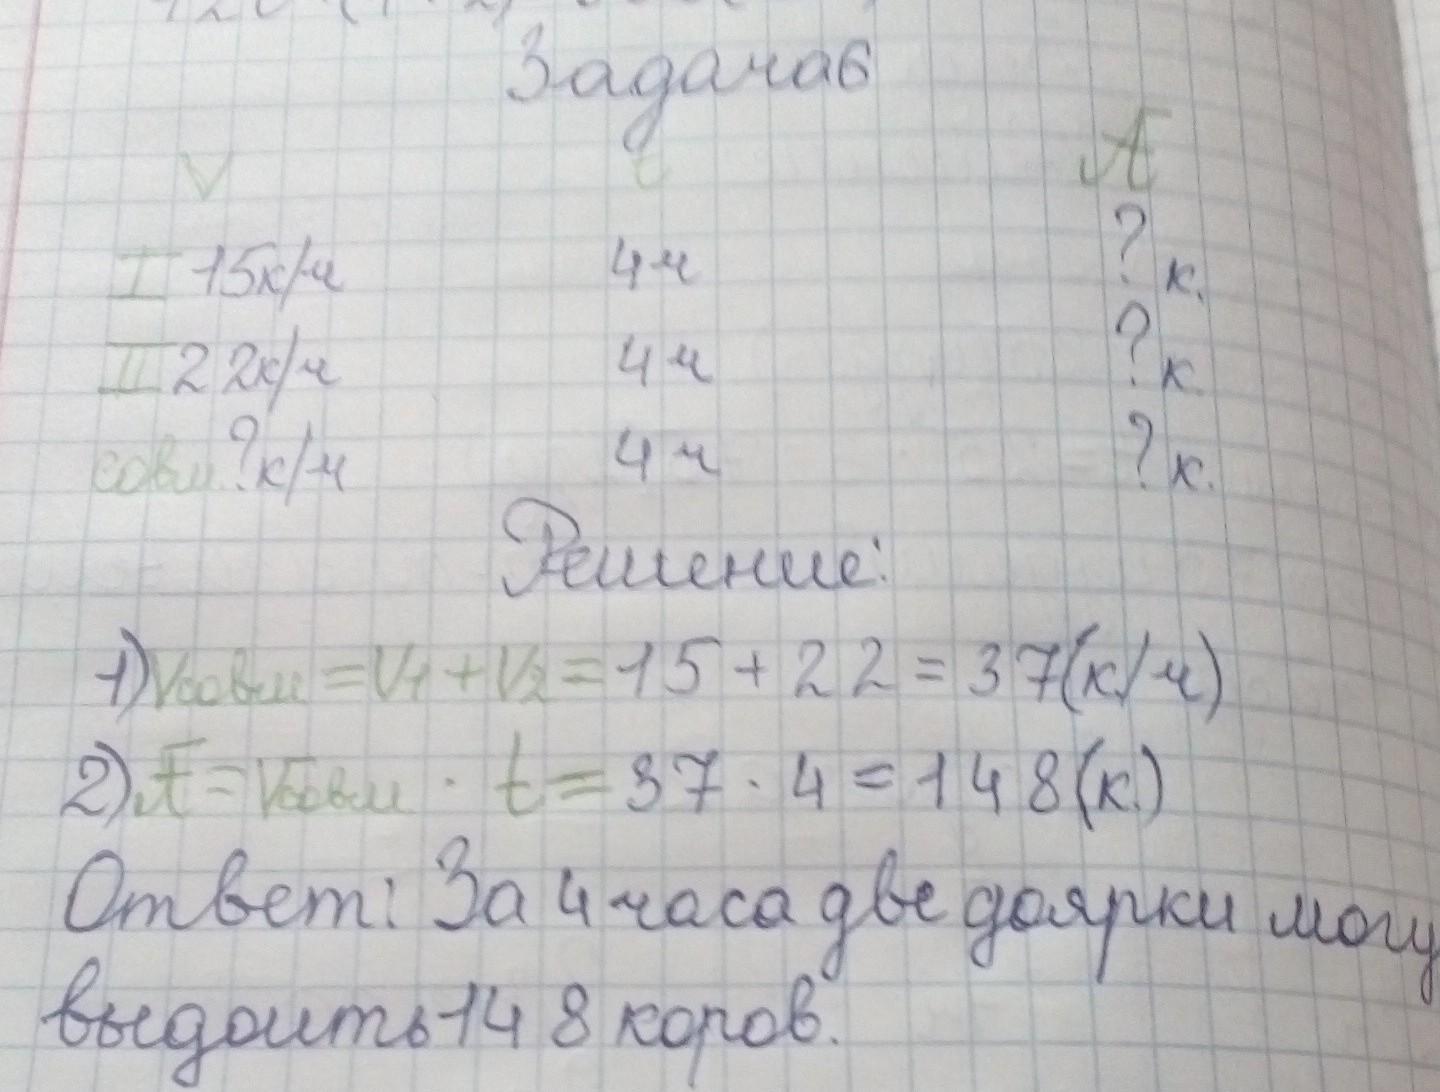 Задача 6
V t A
I 15к/ч 4ч ?к.
II 22к/ч 4ч ?к.
совм ?к/ч 4ч ?к.
Решение:
1) Vсовм = V1 + V2 = 15 + 22 = 37(к/ч)
2) A = Vсовм · t = 37 · 4 = 148(к.)
Ответ: За 4 часа две доярки могу
выдоить 148 коров.